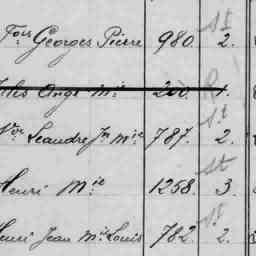 Fois Georges Pierre 980. 2.
Jules Ange Mie 200. 1.
Vor Leandre Jn Mie 787. 2.
Henri Mie 1258. 3.
Henri Jean Mie Louis 782. 2.